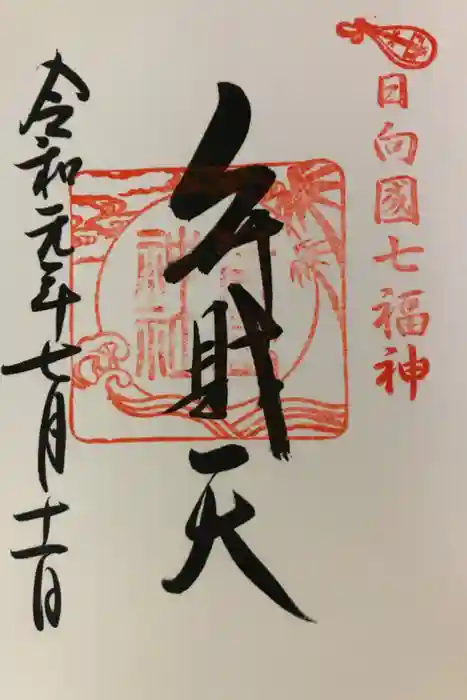 日向國七福神
弁財天
神社
令和元年七月十一日